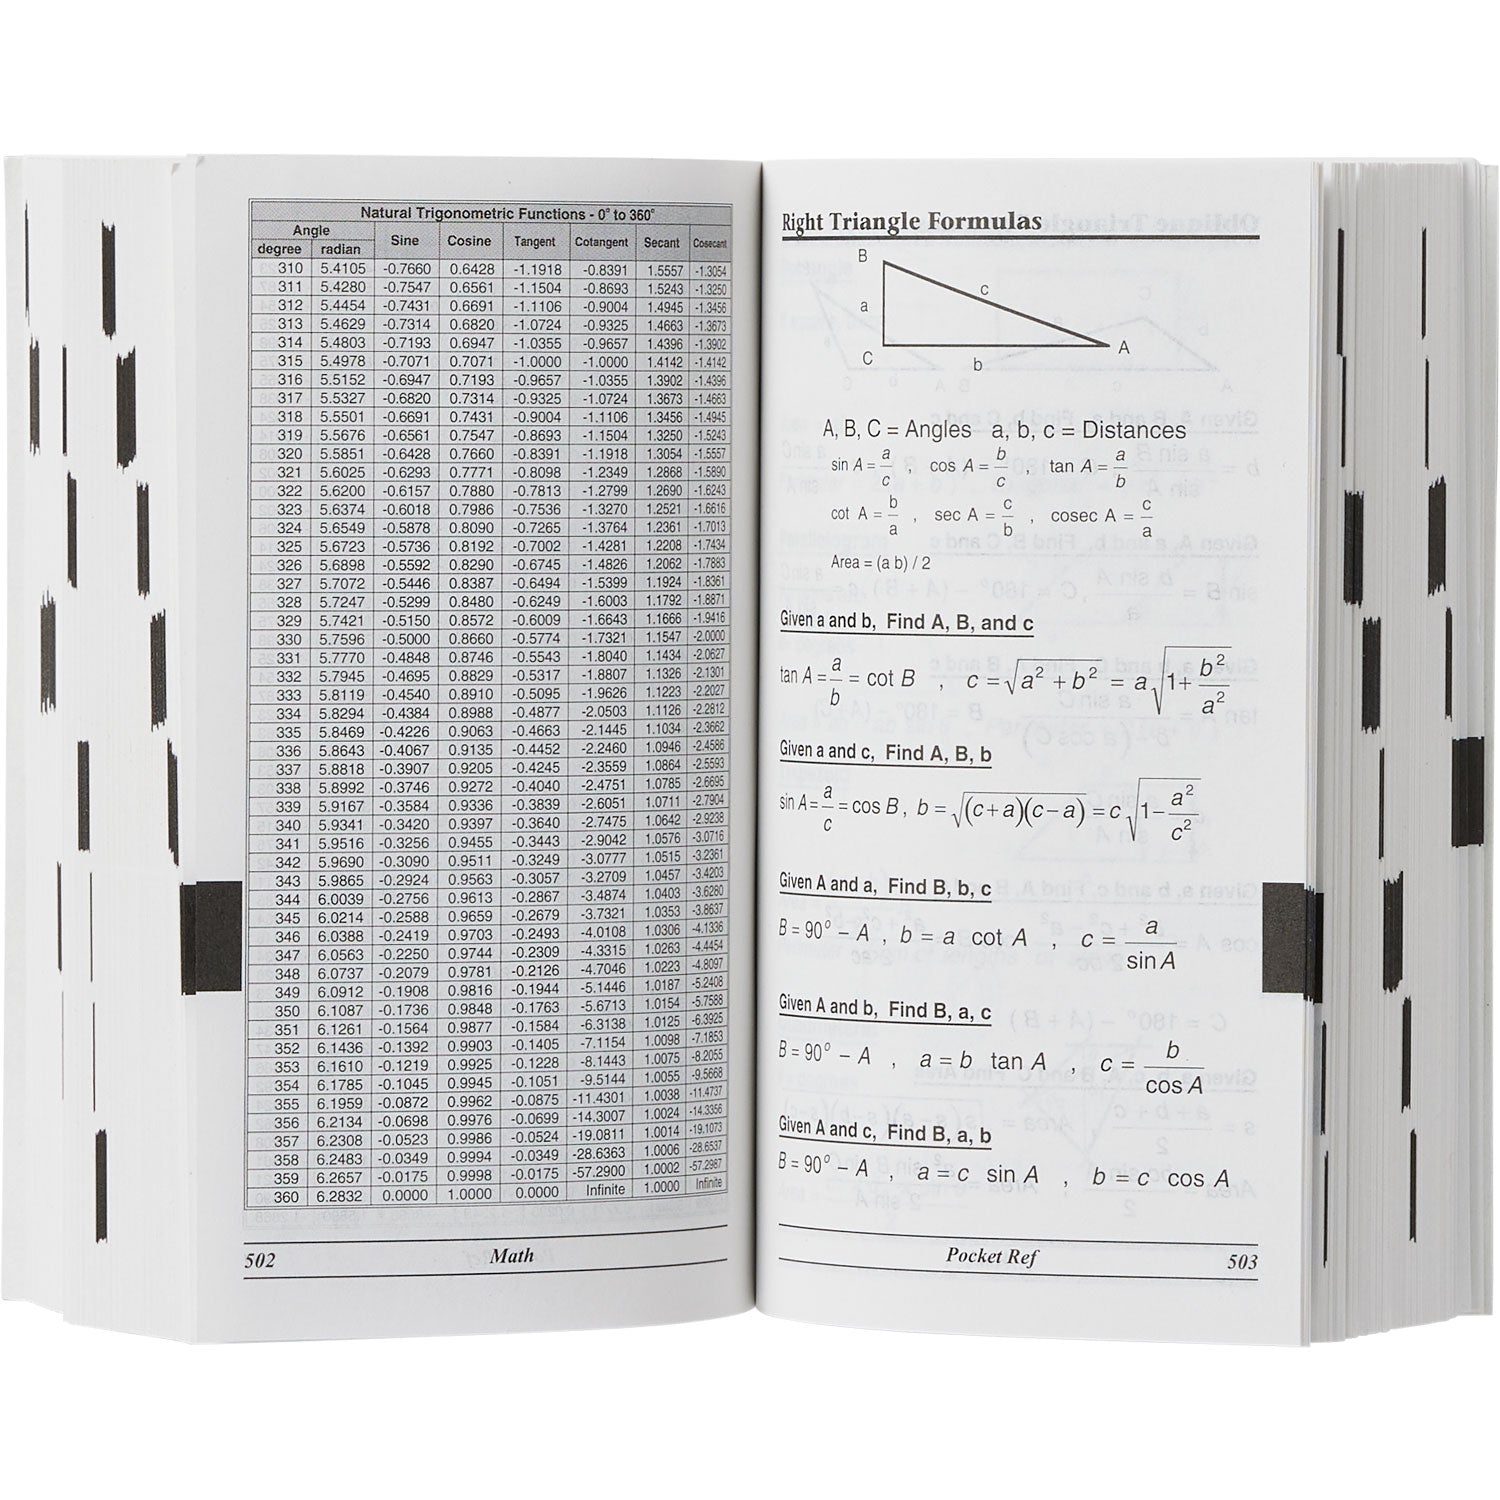 Natural Trigonometric Functions - 0° to 360°
Angle
degree radian Sine Cosine Tangent Cotangent Secant Cosecant
310 5.4105 -0.7660 0.6428 -1.1918 -0.8391 1.5557 -1.3054
311 5.4280 -0.7547 0.6561 -1.1504 -0.8693 1.5243 -1.3250
312 5.4454 -0.7431 0.6691 -1.1106 -0.9004 1.4945 -1.3456
313 5.4629 -0.7314 0.6820 -1.0724 -0.9325 1.4663 -1.3673
314 5.4803 -0.7193 0.6947 -1.0355 -0.9657 1.4396 -1.3902
315 5.4978 -0.7071 0.7071 -1.0000 -1.0000 1.4142 -1.4142
316 5.5152 -0.6947 0.7193 -0.9657 -1.0355 1.3902 -1.4396
317 5.5327 -0.6820 0.7314 -0.9325 -1.0724 1.3673 -1.4663
318 5.5501 -0.6691 0.7431 -0.9004 -1.1106 1.3456 -1.4945
319 5.5676 -0.6561 0.7547 -0.8693 -1.1504 1.3250 -1.5243
320 5.5851 -0.6428 0.7660 -0.8391 -1.1918 1.3054 -1.5557
321 5.6025 -0.6293 0.7771 -0.8098 -1.2349 1.2868 -1.5890
322 5.6200 -0.6157 0.7880 -0.7813 -1.2799 1.2690 -1.6243
323 5.6374 -0.6018 0.7986 -0.7536 -1.3270 1.2521 -1.6616
324 5.6549 -0.5878 0.8090 -0.7265 -1.3764 1.2361 -1.7013
325 5.6723 -0.5736 0.8192 -0.7002 -1.4281 1.2208 -1.7434
326 5.6898 -0.5592 0.8290 -0.6745 -1.4826 1.2062 -1.7883
327 5.7072 -0.5446 0.8387 -0.6494 -1.5399 1.1924 -1.8361
328 5.7247 -0.5299 0.8480 -0.6249 -1.6003 1.1792 -1.8871
329 5.7421 -0.5150 0.8572 -0.6009 -1.6643 1.1666 -1.9416
330 5.7596 -0.5000 0.8660 -0.5774 -1.7321 1.1547 -2.0000
331 5.7770 -0.4848 0.8746 -0.5543 -1.8040 1.1434 -2.0627
332 5.7945 -0.4695 0.8829 -0.5317 -1.8807 1.1326 -2.1301
333 5.8119 -0.4540 0.8910 -0.5095 -1.9626 1.1223 -2.2027
334 5.8294 -0.4384 0.8988 -0.4877 -2.0503 1.1126 -2.2812
335 5.8469 -0.4226 0.9063 -0.4663 -2.1445 1.1034 -2.3662
336 5.8643 -0.4067 0.9135 -0.4452 -2.2460 1.0946 -2.4586
337 5.8818 -0.3907 0.9205 -0.4245 -2.3559 1.0864 -2.5593
338 5.8992 -0.3746 0.9272 -0.4040 -2.4751 1.0785 -2.6695
339 5.9167 -0.3584 0.9336 -0.3839 -2.6051 1.0711 -2.7904
340 5.9341 -0.3420 0.9397 -0.3640 -2.7475 1.0642 -2.9238
341 5.9516 -0.3256 0.9455 -0.3443 -2.9042 1.0576 -3.0716
342 5.9690 -0.3090 0.9511 -0.3249 -3.0777 1.0515 -3.2361
343 5.9865 -0.2924 0.9563 -0.3057 -3.2709 1.0457 -3.4203
344 6.0039 -0.2756 0.9613 -0.2867 -3.4874 1.0403 -3.6280
345 6.0214 -0.2588 0.9659 -0.2679 -3.7321 1.0353 -3.8637
346 6.0388 -0.2419 0.9703 -0.2493 -4.0108 1.0306 -4.1336
347 6.0563 -0.2250 0.9744 -0.2309 -4.3315 1.0263 -4.4454
348 6.0737 -0.2079 0.9781 -0.2126 -4.7046 1.0223 -4.8097
349 6.0912 -0.1908 0.9816 -0.1944 -5.1446 1.0187 -5.2408
350 6.1087 -0.1736 0.9848 -0.1763 -5.6713 1.0154 -5.7588
351 6.1261 -0.1564 0.9877 -0.1584 -6.3138 1.0125 -6.3925
352 6.1436 -0.1392 0.9903 -0.1405 -7.1154 1.0098 -7.1853
353 6.1610 -0.1219 0.9925 -0.1228 -8.1443 1.0075 -8.2055
354 6.1785 -0.1045 0.9945 -0.1051 -9.5144 1.0055 -9.5668
355 6.1959 -0.0872 0.9962 -0.0875 -11.4301 1.0038 -11.4737
356 6.2134 -0.0698 0.9976 -0.0699 -14.3007 1.0024 -14.3356
357 6.2308 -0.0523 0.9986 -0.0524 -19.0811 1.0014 -19.1073
358 6.2483 -0.0349 0.9994 -0.0349 -28.6363 1.0006 -28.6537
359 6.2657 -0.0175 0.9998 -0.0175 -57.2900 1.0002 -57.2987
360 6.2832 0.0000 1.0000 0.0000 Infinite 1.0000 Infinite
502 Math
Right Triangle Formulas
B
c
a
C
b
A
A, B, C = Angles a, b, c = Distances
sin A = a/c , cos A = b/c , tan A = a/b
cot A = b/a , sec A = c/b , cosec A = c/a
Area = (a b) / 2
Given a and b, Find A, B, and c
tan A = a/b = cot B , c = √(a² + b²) = a√(1 + b²/a²)
Given a and c, Find A, B, b
sin A = a/c = cos B, b = √((c+a)(c−a)) = c√(1 − a²/c²)
Given A and a, Find B, b, c
B = 90° − A , b = a cot A , c = a/sin A
Given A and b, Find B, a, c
B = 90° − A , a = b tan A , c = b/cos A
Given A and c, Find B, a, b
B = 90° − A , a = c sin A , b = c cos A
Pocket Ref 503